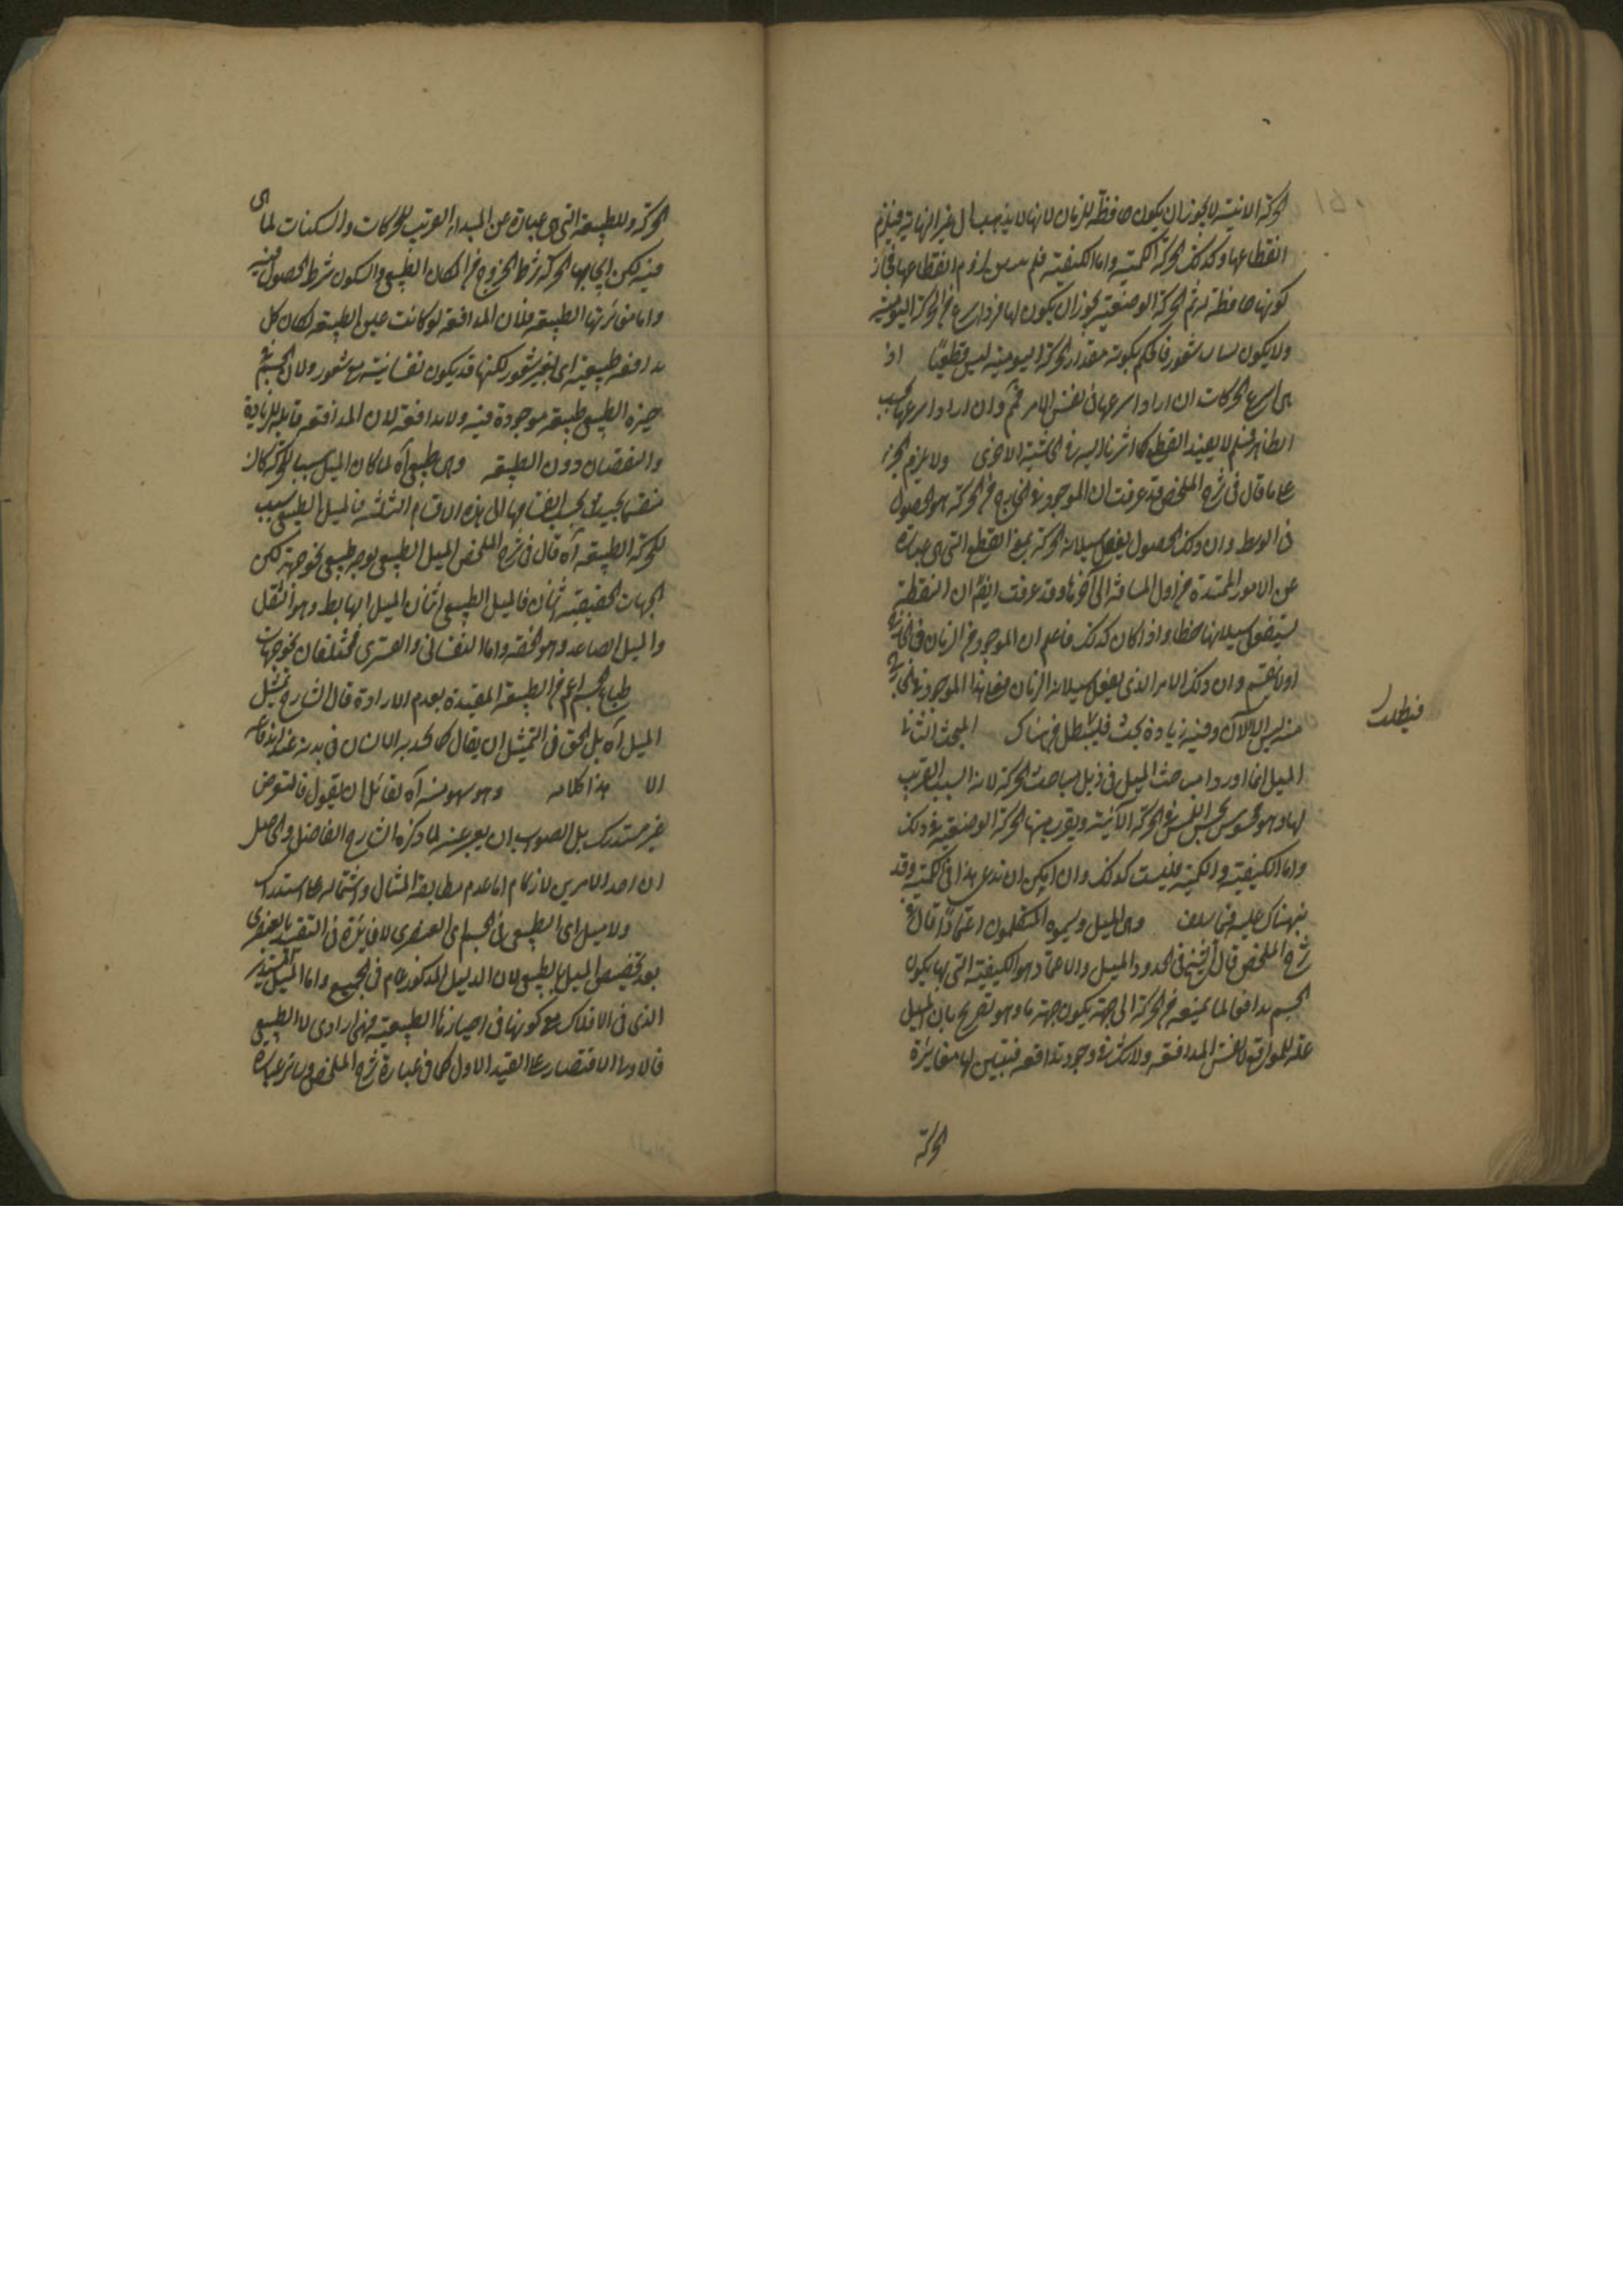 الحركة الاينية لا يجوز ان يكون حافظة للزمان لانها لا يذهب الى غير النهاية فيلزم
انقطاعها وكذلك الحركة الكمية واما الكيفية فلم لزوم انقطاعها فجاز
كونها حافظة له ثم الحركة الوضعية يجوز ان يكون لها فرد اسرع من الحركة اليومية
ولا يكون لنا به شعور فالحكم بكونه مقدار الحركة اليومية ليس قطعيا اذ
هى اسرع الحركات ان اراد اسرعها فى نفس الامر فمم وان اراد اسرعها بحسب
الظاهر فمسلم لا يفيد القطع كما اشرنا اليه فى الحاشية الاخرى ولا يلزم
على ما قال فى شرح الملخص قد عرفت ان الموجود فى الخارج من الحركة هو الحصول
فى الوسط وان ذلك الحصول يفعل بسيلانه الحركة بمعنى القطع التى هى عبارة
عن الامور الممتدة من اول المسافة الى آخرها وقد عرفت ايضا ان النقطة
يفعل بسيلانها خطا واذا كان كذلك فاعلم ان الموجود من الزمان فى الخارج
امر لا ينقسم وان ذلك الامر الذى يفعل بسيلانه الزمان فعلى هذا الموجود فى الخارج
منه ليس الا الآن وفيه زيادة بحث فليطلب من هناك المبحث الثانى
الميل انما اورد مباحث الميل فى ذيل مباحث الحركة لانه السبب القريب
لها وهو محسوس بحس اللمس فى الحركة الاينية ويقرب منها الحركة الوضعية فى ذلك
واما الكيفية والكمية فليست كذلك وان امكن ان يدعى هذا فى الكمية وقد
نبهناك عليه فيما سلف وهى الميل ويسميه المتكلمون اعتمادا قال فى
شرح الملخص قال الشيخ فى الحدود الميل والاعتماد هو الكيفية التى بها يكون
الجسم مدافعا لما يمنعه من الحركة الى جهة يكون جهة ما وهو تصريح بان الميل
علة للمدافعة لا نفس المدافعة ولا شك فى وجود مدافعة فنبين لها مغايرة
الحركة
فيطلب
الحركة وللطبيعة التى هى عبارة عن المبدأ القريب للحركات والسكنات لما هى
فيه لكن ايجابها الحركة بشرط الخروج من المكان الطبيعى والسكون بشرط الحصول فيه
واما مغايرتها الطبيعة فلان المدافعة لو كانت عين الطبيعة لكان كل
مدافعة طبيعية اى بغير شعور لكنها قد يكون نفسانية مع شعور ولان الجسم فى
حيزه الطبيعى طبيعة موجودة فيه ولا مدافعة لان المدافعة قابلة للزيادة
والنقصان دون الطبيعة وهى طبيعى آه لما كان الميل سببا للحركة كان
منقسما بحسب انقسامها الى هذه الاقسام الثلثة فالميل الطبيعى سبب
للحركة الطبيعية آه قال فى شرح الملخص الميل الطبيعى يوجد طبيعى نحو جهة لكن
الجهات الحقيقية ثنتان فالميل الطبيعى اثنان الميل الهابط وهو الثقل
والميل الصاعد وهو الخفة واما النفسانى والقسرى فمختلفان نحو جهات
طباع الجسم اعم من الطبيعة المقيدة بعدم الارادة قال الشارح تمثيل
الميل آه بل الحق فى التمثيل ان يقال كما يحد به الانسان فى بدنه عند اندفاعه
الا هذا كلامه وهو سهو منه آه لقائل ان يقول فالتعرض
غير مستدرك بل الصواب ان يعبر عنه لما ذكره الشارح الفاضل والحاصل
ان احد الامرين لازم اما عدم مطابقة المثال واشتماله على استدراك
ولا ميل اى الطبيعى فى الجسم اى العنصرى لا فائدة فى التقييد بالعنصرى
بعد تخصيص الميل بالطبيعى لان الدليل المذكور عام فى الجميع واما الميل المستدير
الذى فى الافلاك مع كونها فى احيازها الطبيعية فهى ارادى لا الطبيعى
فالاولى الاقتصار على القيد الاول كما فى عبارة شرح الملخص وسائر عباراته